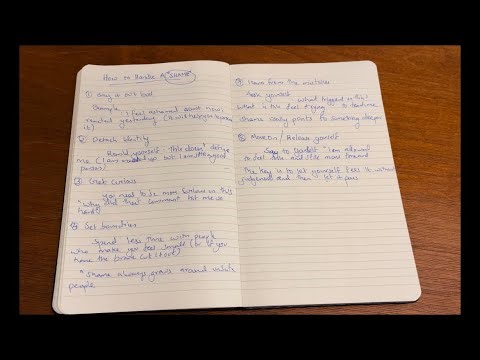 How to Handle A "SHAME"
① Say it out loud
Example
"I feel ashamed about how I
reacted yesterday (it will help you
it)
② Detach identity
Remind yourself "This doesn't define
me (I am messed up but I am still a good
person)
③ Get Curious
you need to be more Curious in this
"why did that comment hit me so
hard"
④ Set boundries
Spend less time with people
who make you feel small (or if you
have the bravery cut it out)
"Shame Always grows around
people
④ learn from the mistakes
Ask yourself
what triggered in this
what is this feel trying to
shame easily points to something deeper
⑤ Move on / Release yourself
Say to yourself "I am allowed
to feel this and still move forward
The key is to let yourself feel it without
judgement and then let it pass